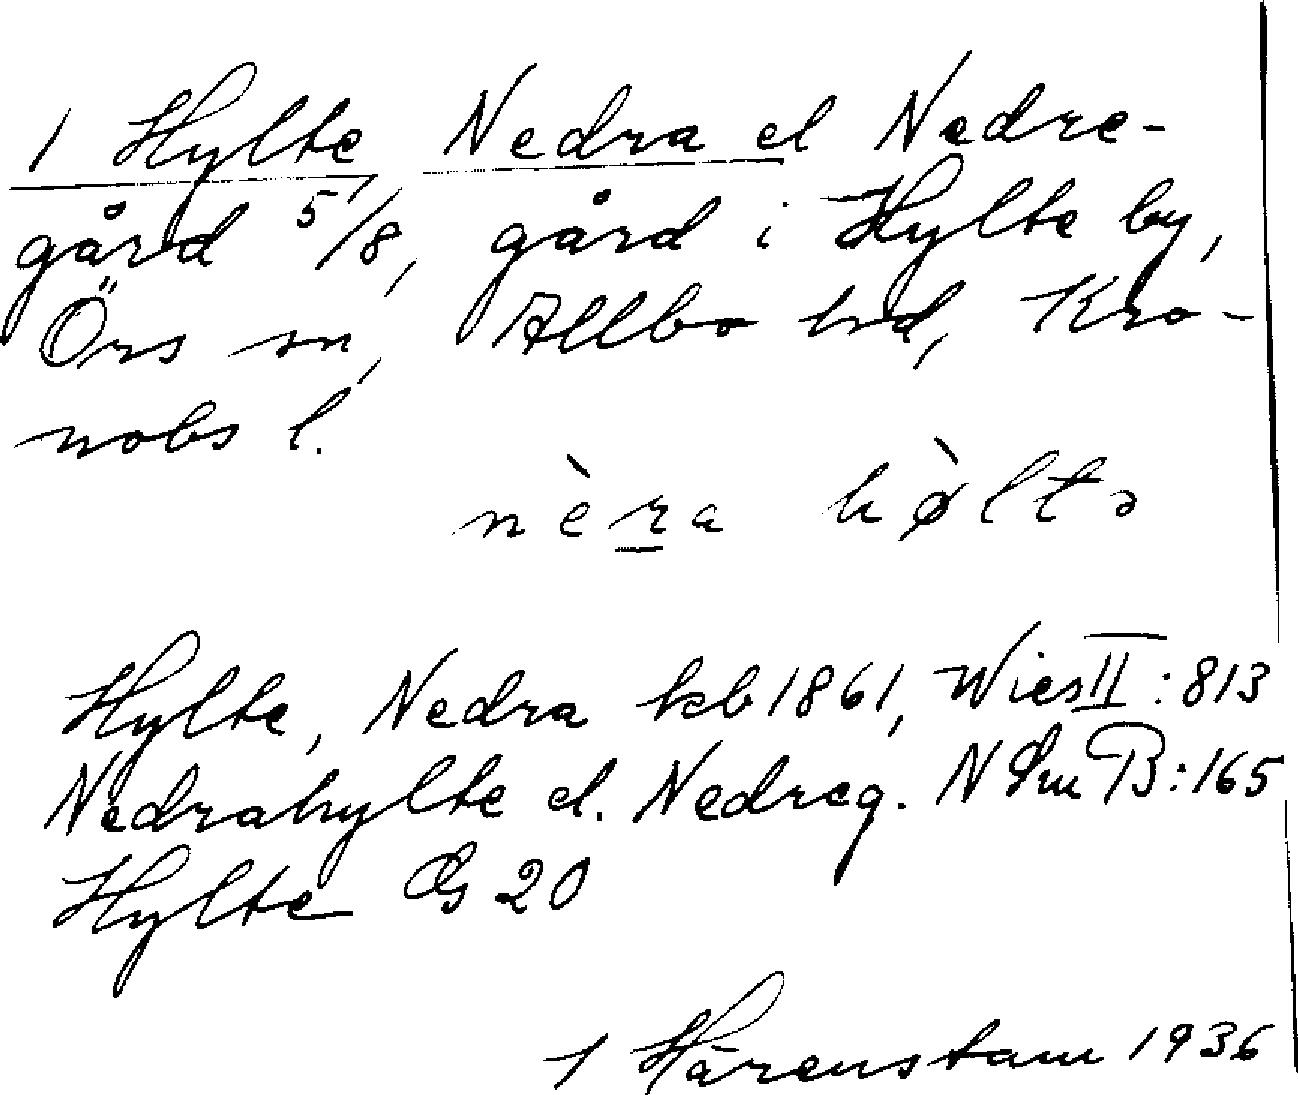 1 Hylte Nedra el Nedre-
gård 5/8, gård i Hylte by,
Örs sn, Allbo hd, Kro-
nobs l.
nèra hø̀ltə
Hylte, Nedra kb 1861, Wies II:813
Nedrahylte el. Nedreg. NSm B:165
Hylte GS 20
1 Härenstam 1936